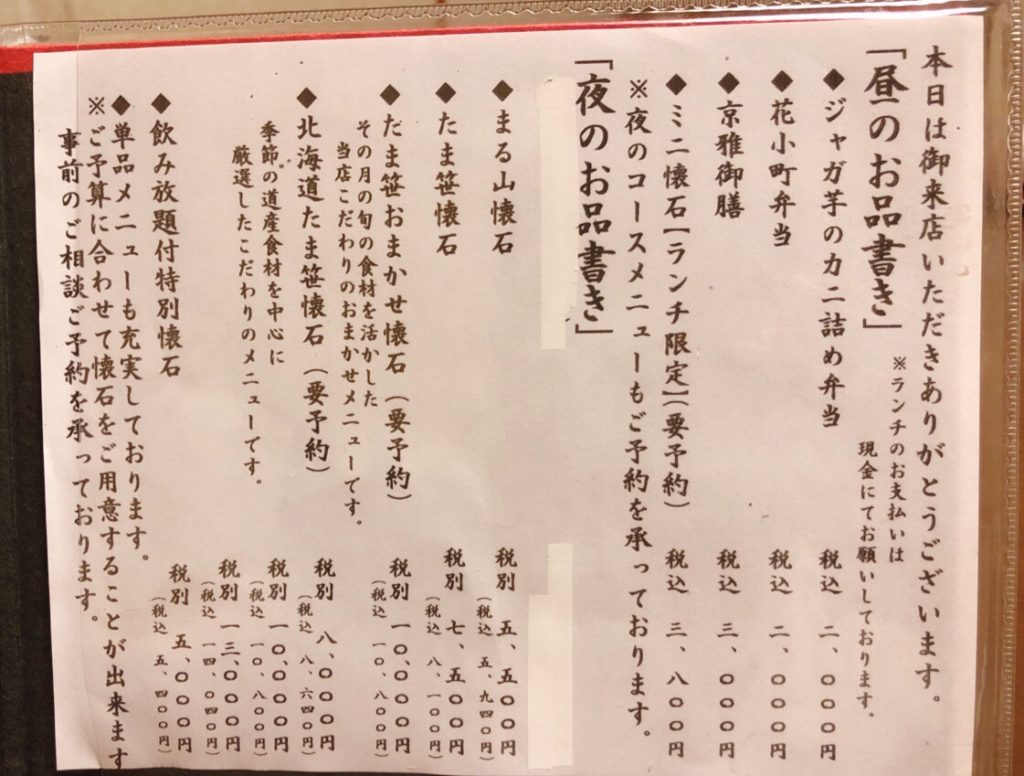 本日は御来店いただきありがとうございます。
「昼のお品書き」
※ランチのお支払いは
現金にてお願いしております。
◆ジャガ芋のカニ詰め弁当 税込 二、〇〇〇円
◆花小町弁当 税込 二、〇〇〇円
◆京雅御膳 税込 三、〇〇〇円
◆ミニ懐石【ランチ限定】(要予約) 税込 三、八〇〇円
※夜のコースメニューもご予約を承っております。
「夜のお品書き」
◆まる山懐石 税別 五、五〇〇円
(税込 五、九四〇円)
◆たま笹懐石 税別 七、五〇〇円
(税込 八、一〇〇円)
◆だま笹おまかせ懐石(要予約) 税別 一〇、〇〇〇円
(税込 一〇、八〇〇円)
その月の旬の食材を活かした
当店こだわりのおまかせメニューです。
◆北海道たま笹懐石(要予約) 税別 八、〇〇〇円
(税込 八、六四〇円)
季節の道産食材を中心に 税別 一〇、〇〇〇円
(税込 一〇、八〇〇円)
厳選したこだわりのメニューです。
税別 一三、〇〇〇円
(税込 一四、〇四〇円)
◆飲み放題付特別懐石 税別 五、〇〇〇円
(税込 五、四〇〇円)
◆単品メニューも充実しております。
※ご予算に合わせて懐石をご用意することが出来ます
事前のご相談ご予約を承っております。